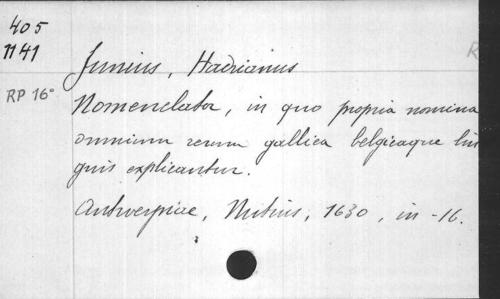 405
1141
Junius, Hadrianus
RP 16°
Nomenclator, in quo propria nomina
omnium rerum gallica belgicaque lin
guis explicantur.
Antwerpiae, Nutius, 1630, in -16.